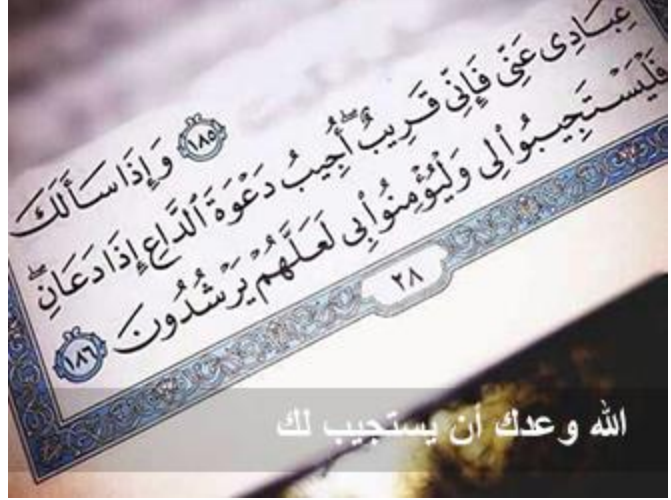 ﴿١٨٥﴾ وَإِذَا سَأَلَكَ
عِبَادِى عَنِّى فَإِنِّى قَرِيبٌ ۖ أُجِيبُ دَعْوَةَ ٱلدَّاعِ إِذَا دَعَانِ ۖ
فَلْيَسْتَجِيبُوا۟ لِى وَلْيُؤْمِنُوا۟ بِى لَعَلَّهُمْ يَرْشُدُونَ ﴿١٨٦﴾
٢٨
الله وعدك أن يستجيب لك